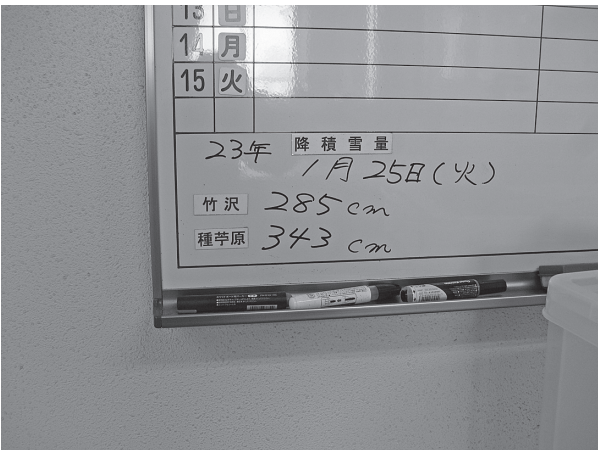 13 日
14 月
15 火
降積雪量
23年 1月25日(火)
竹沢 285cm
種苧原 343 cm